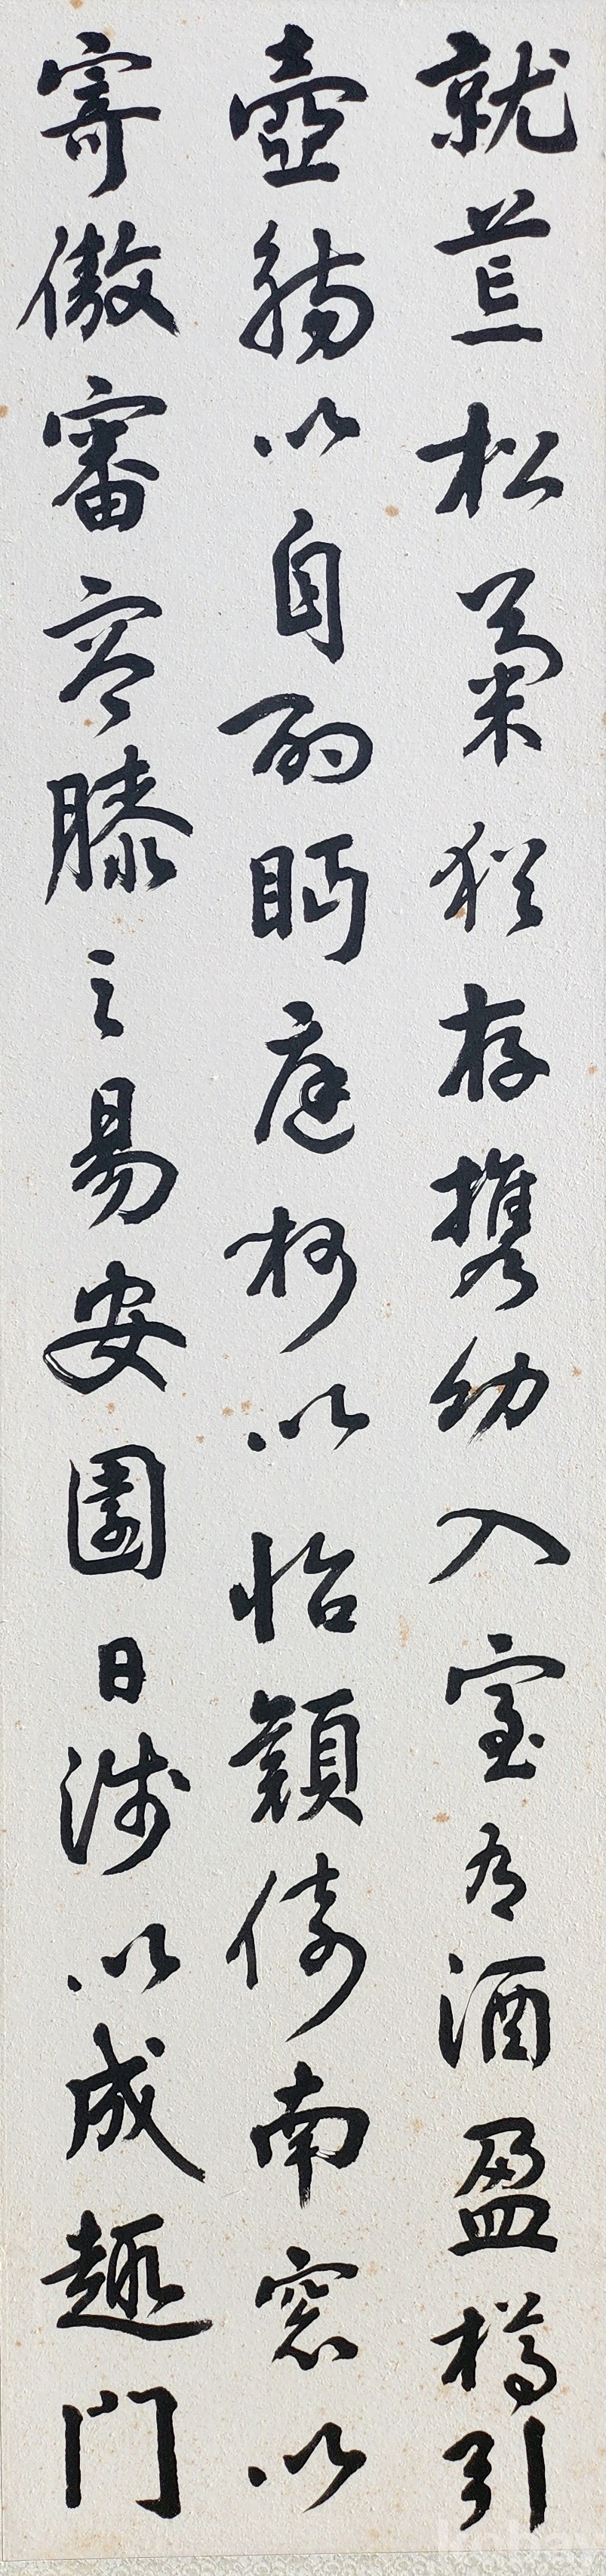 就荒松菊猶存携幼入室有酒盈樽引
壺觴以自酌眄庭柯以怡顔倚南窓以
寄傲審容膝之易安園日渉以成趣門